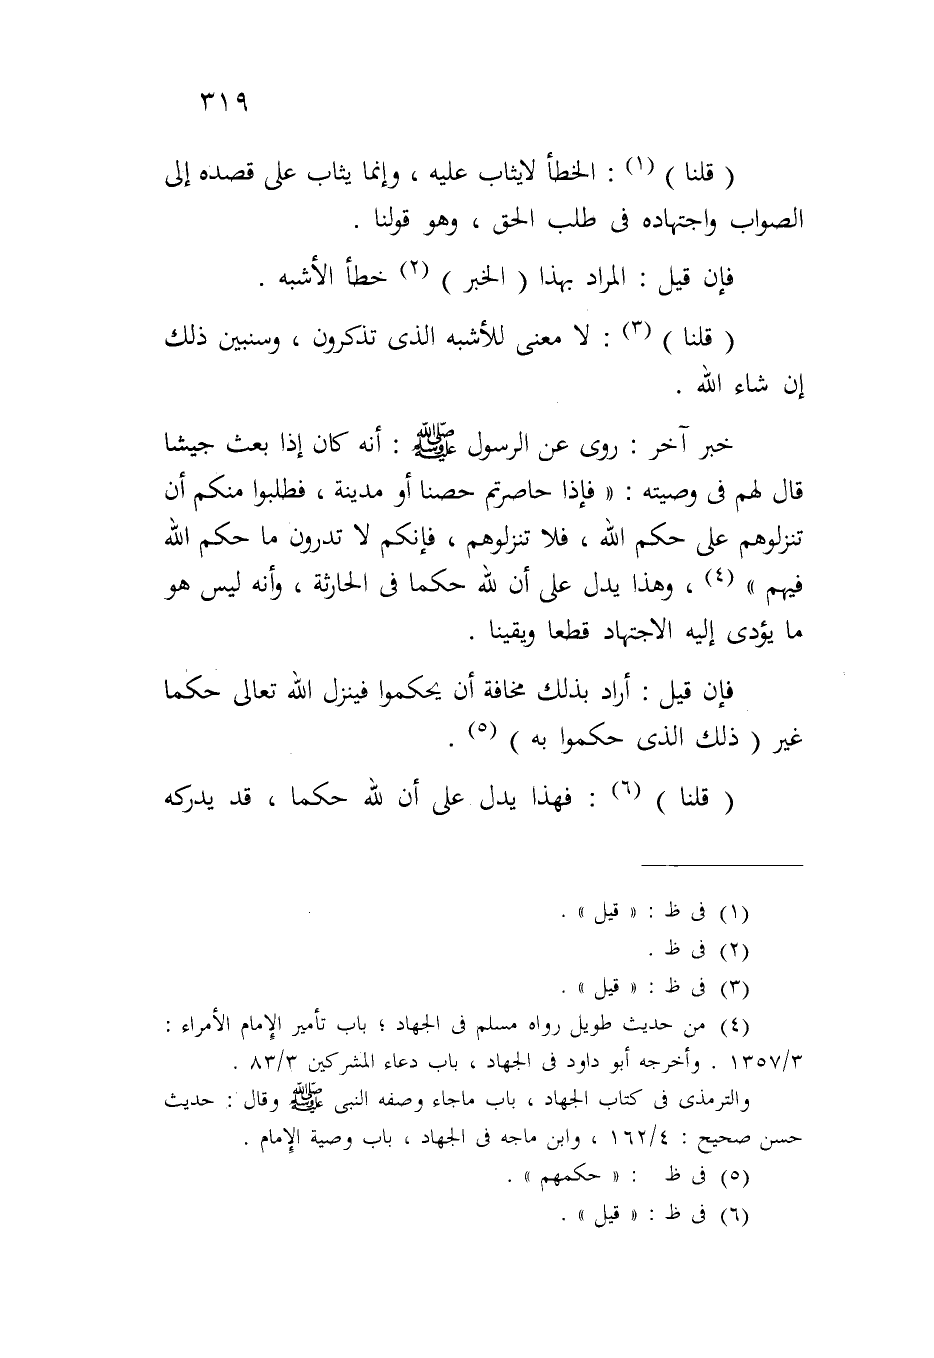 ٣١٩
( قلنا ) (١) : الخطأ لايثاب عليه ، وإنما يثاب على قصده إلى
الصواب واجتهاده فى طلب الحق ، وهو قولنا .
فإن قيل : المراد بهذا ( الخبر ) (٢) خطأ الأشبه .
( قلنا ) (٣) : لا معنى للأشبه الذى تذكرون ، وسنبين ذلك
إن شاء الله .
خبر آخر : روى عن الرسول ﷺ : أنه كان إذا بعث جيشا
قال لهم فى وصيته : « فإذا حاصرتم حصنا أو مدينة ، فطلبوا منكم أن
تنزلوهم على حكم الله ، فلا تنزلوهم ، فإنكم لا تدرون ما حكم الله
فيهم » (٤) ، وهذا يدل على أن لله حكما فى الحارثة ، وأنه ليس هو
ما يؤدى إليه الاجتهاد قطعا ويقينا .
فإن قيل : أراد بذلك مخافة أن يحكموا فينزل الله تعالى حكما
غير ( ذلك الذى حكموا به ) (٥) .
( قلنا ) (٦) : فهذا يدل على أن لله حكما ، قد يدركه
(١) فى ظ : « قيل » .
(٢) فى ظ .
(٣) فى ظ : « قيل » .
(٤) من حديث طويل رواه مسلم فى الجهاد ؛ باب تأمير الإمام الأمراء :
١٣٥٧/٣ . وأخرجه أبو داود فى الجهاد ، باب دعاء المشركين ٨٣/٣ .
والترمذى فى كتاب الجهاد ، باب ماجاء وصفه النبى ﷺ وقال : حديث
حسن صحيح : ١٦٢/٤ ، وابن ماجه فى الجهاد ، باب وصية الإمام .
(٥) فى ظ : « حكمهم » .
(٦) فى ظ : « قيل » .